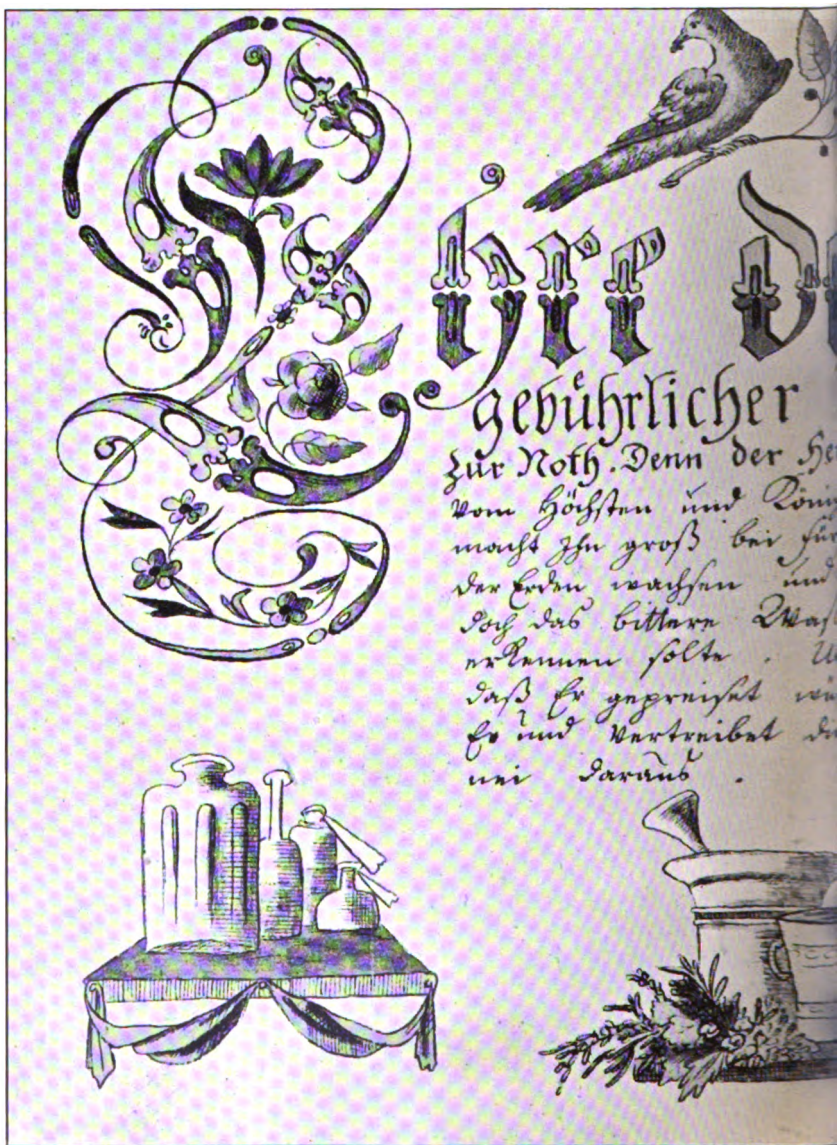 Ehre De
gebührlicher
zur Noth. Denn der He
vom Höchsten und Kön
macht Ihn groß bei Für
der Erden wachsen und
doch das bittere Was
erkennen solte . U
daß Er gepreiset we
Er und vertreibet da
nei daraus .